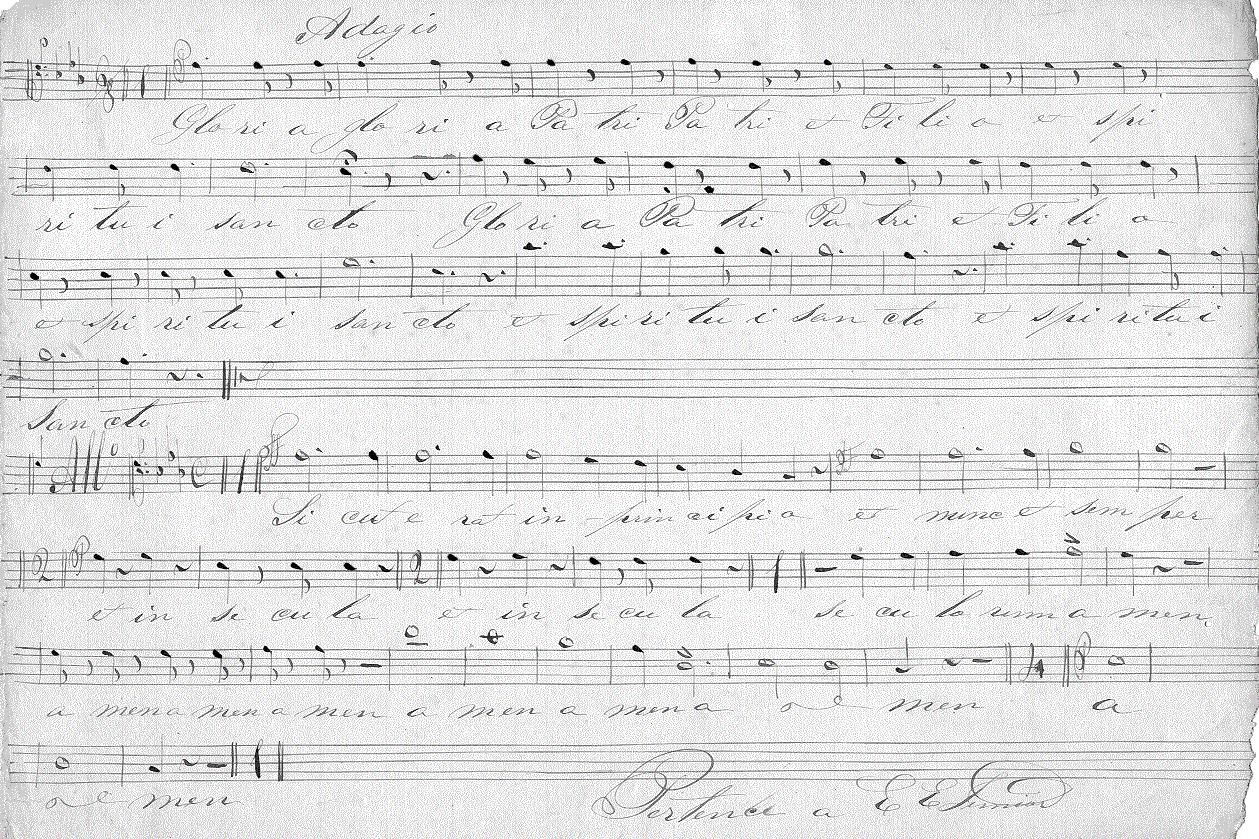 Adagio
Glo ri a glo ri a Pa tri Pa tri et Fi li o et spi
ri tu i san cto Glo ri a Pa tri Pa tri et Fi li o
et spi ri tu i san cto et spi ri tu i san cto et spi ri tu i
san cto
All.o
Si cut e rat in prin ci pi o et nunc et sem per
2 2
et in se cu la et in se cu la se cu lo rum a men.
a men a men a men a men a men a men a
a men
Pertence a E E Junior